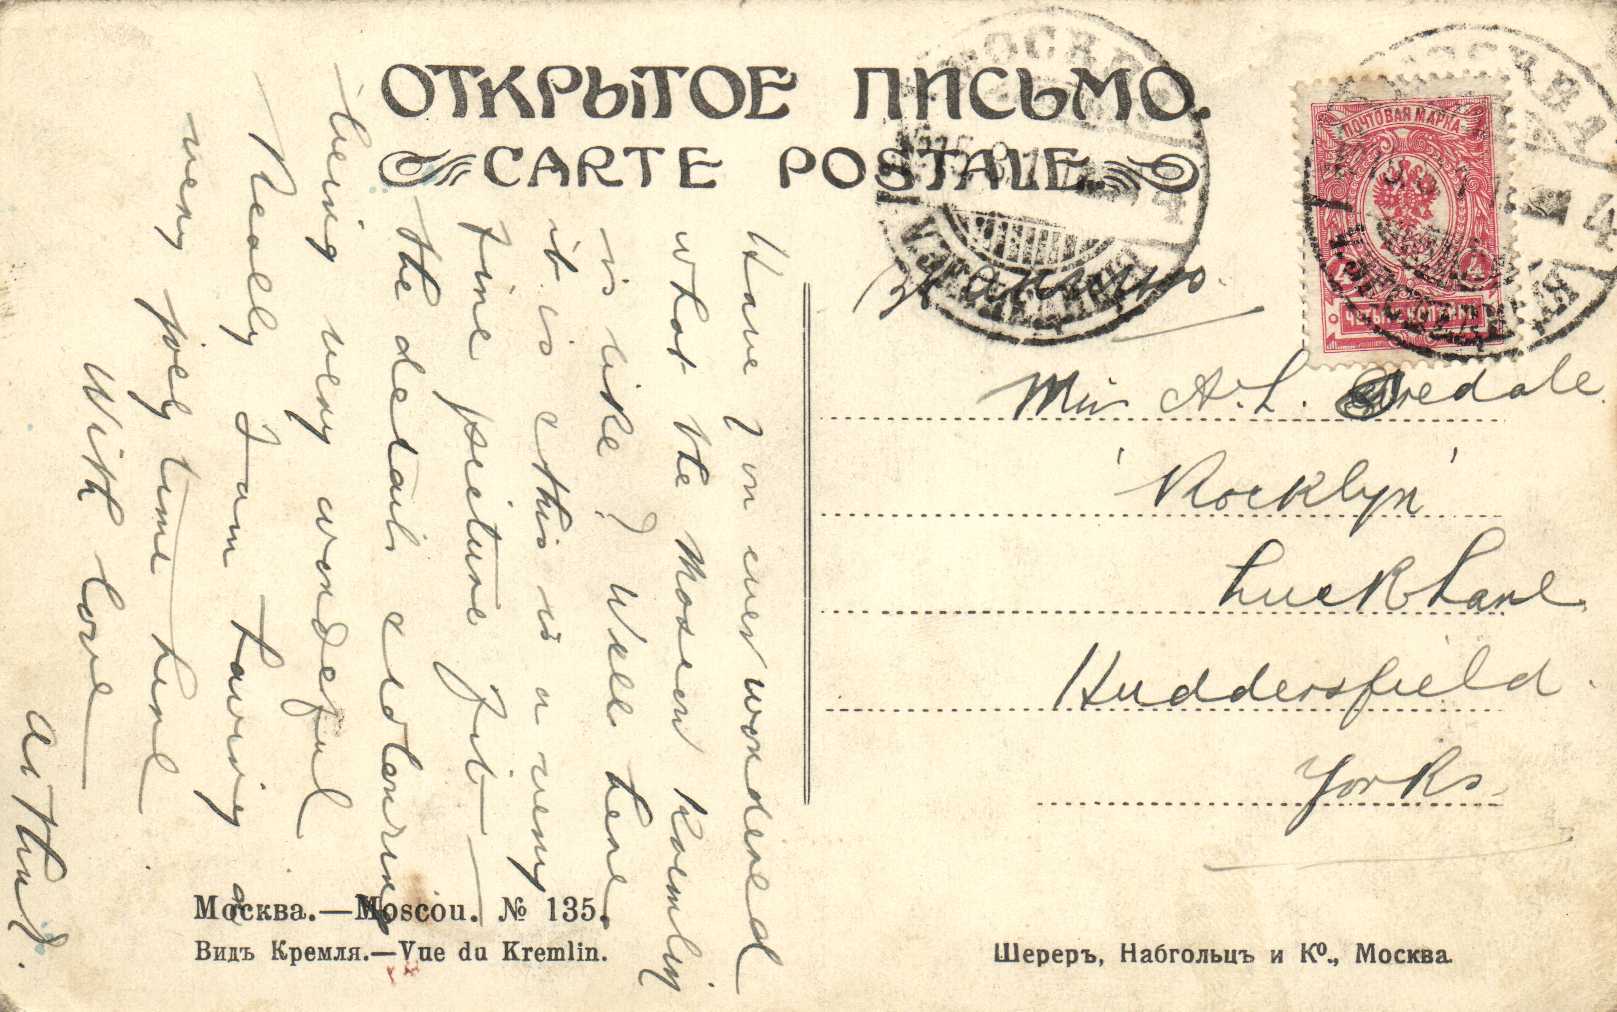 ОТКРЫТОЕ ПИСЬМО.
CARTE POSTALE.
МОСКВА
МОСКВА
4
4
ПОЧТОВАЯ МАРКА
4 4
Have you ever wondered
what the Moscow Kremlin
is like? Well here
it is this is a very
fine picture
the details & colouring
being very wonderful
Really I am having a
very jolly time here
With love
Arthur.
Miss A. L.
'Rocklyn'
Luck Lane
Huddersfield.
Yorks.
Москва.—Moscou. № 135.
Видъ Кремля.—Vue du Kremlin.
Шереръ, Набгольцъ и Ко., Москва.